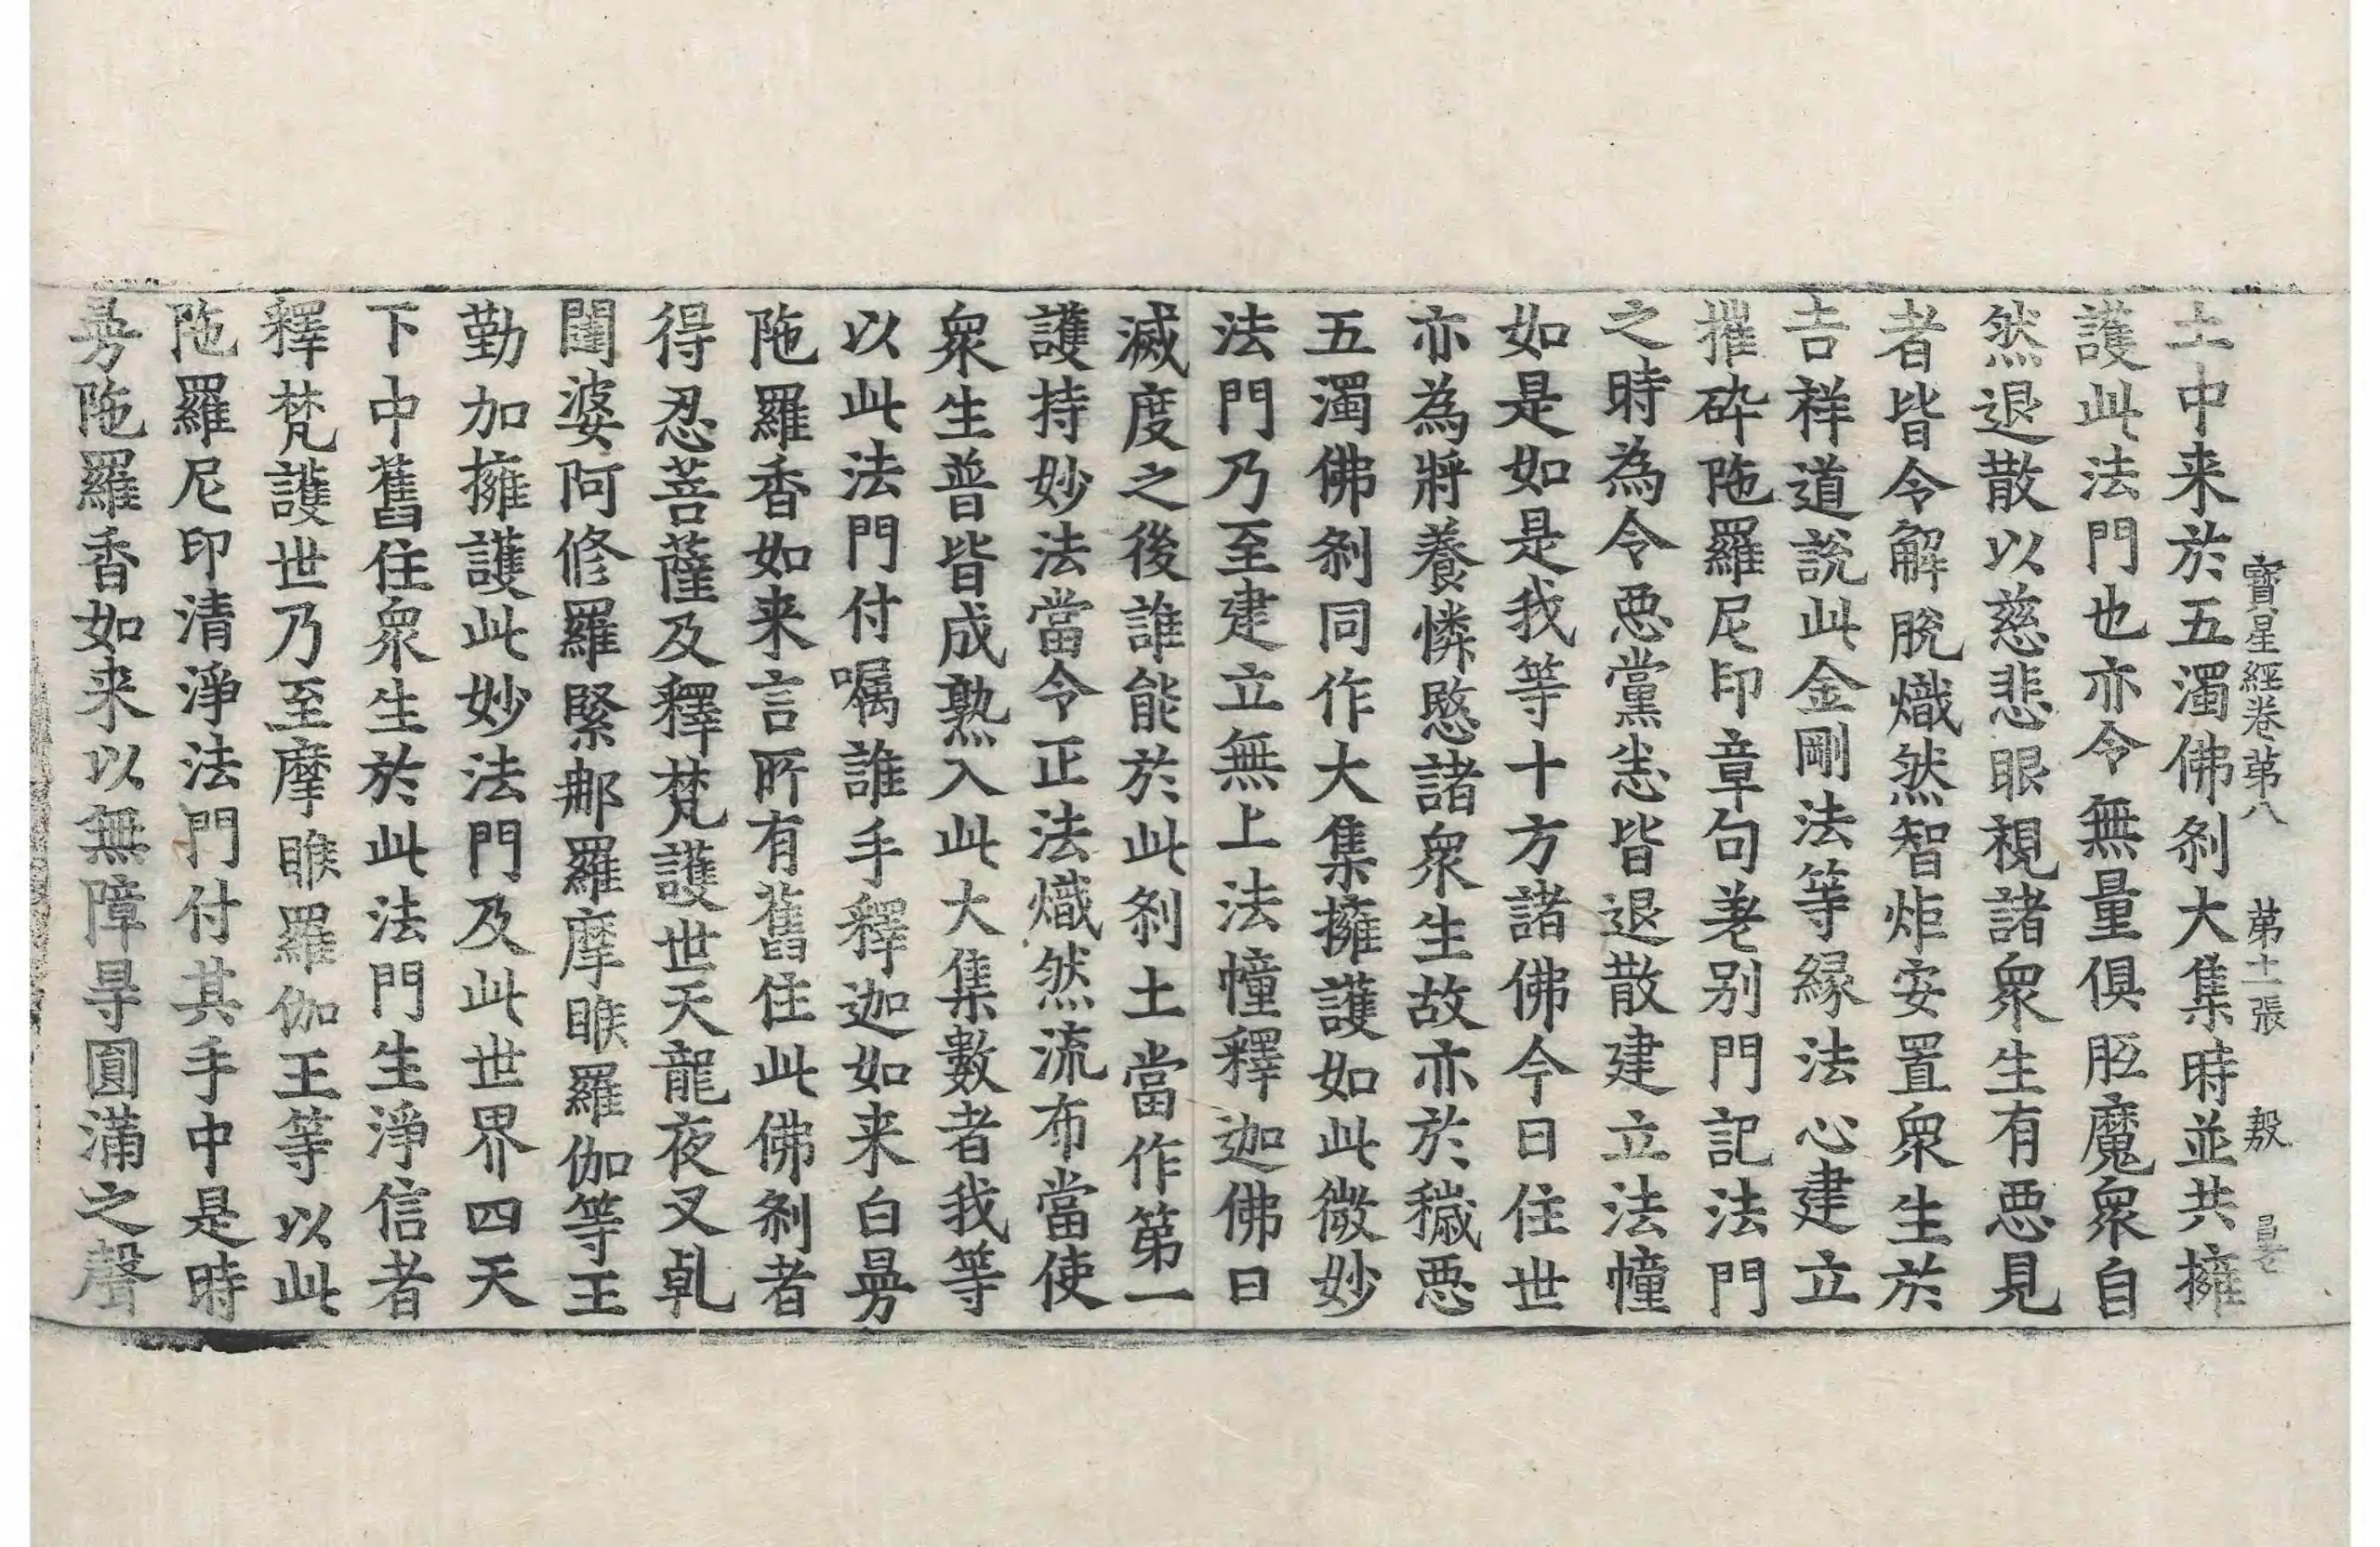 寶星經卷第八 第十一張 殷
土中来於五濁佛刹大集時並共擁
護此法門也亦令無量俱胝魔衆自
然退散以慈悲眼視諸衆生有恶見
者皆令解脫熾然智炬安置衆生於
吉祥道說此金剛法等緣法心建立
摧碎陁羅尼印章句差别門記法門
之時為令恶黨悉皆退散建立法幢
如是如是我等十方諸佛今日住世
亦為將養憐愍諸衆生故亦於穢恶
五濁佛刹同作大集擁護如此微妙
法門乃至建立無上法幢釋迦佛曰
滅度之後誰能於此刹土當作第一
護持妙法當令正法熾然流布當使
衆生普皆成熟入此大集數者我等
以此法門付囑誰手釋迦如来白昜
陁羅香如来言所有舊住此佛刹者
得忍菩薩及釋梵護世天龍夜叉乹
闥婆阿修羅緊那羅摩睺羅伽等王
勤加擁護此妙法門及此世界四天
下中舊住衆生於此法門生淨信者
釋梵護世乃至摩睺羅伽王等以此
陁羅尼印清淨法門付其手中是時
昜陁羅香如来以無障㝵圓滿之聲